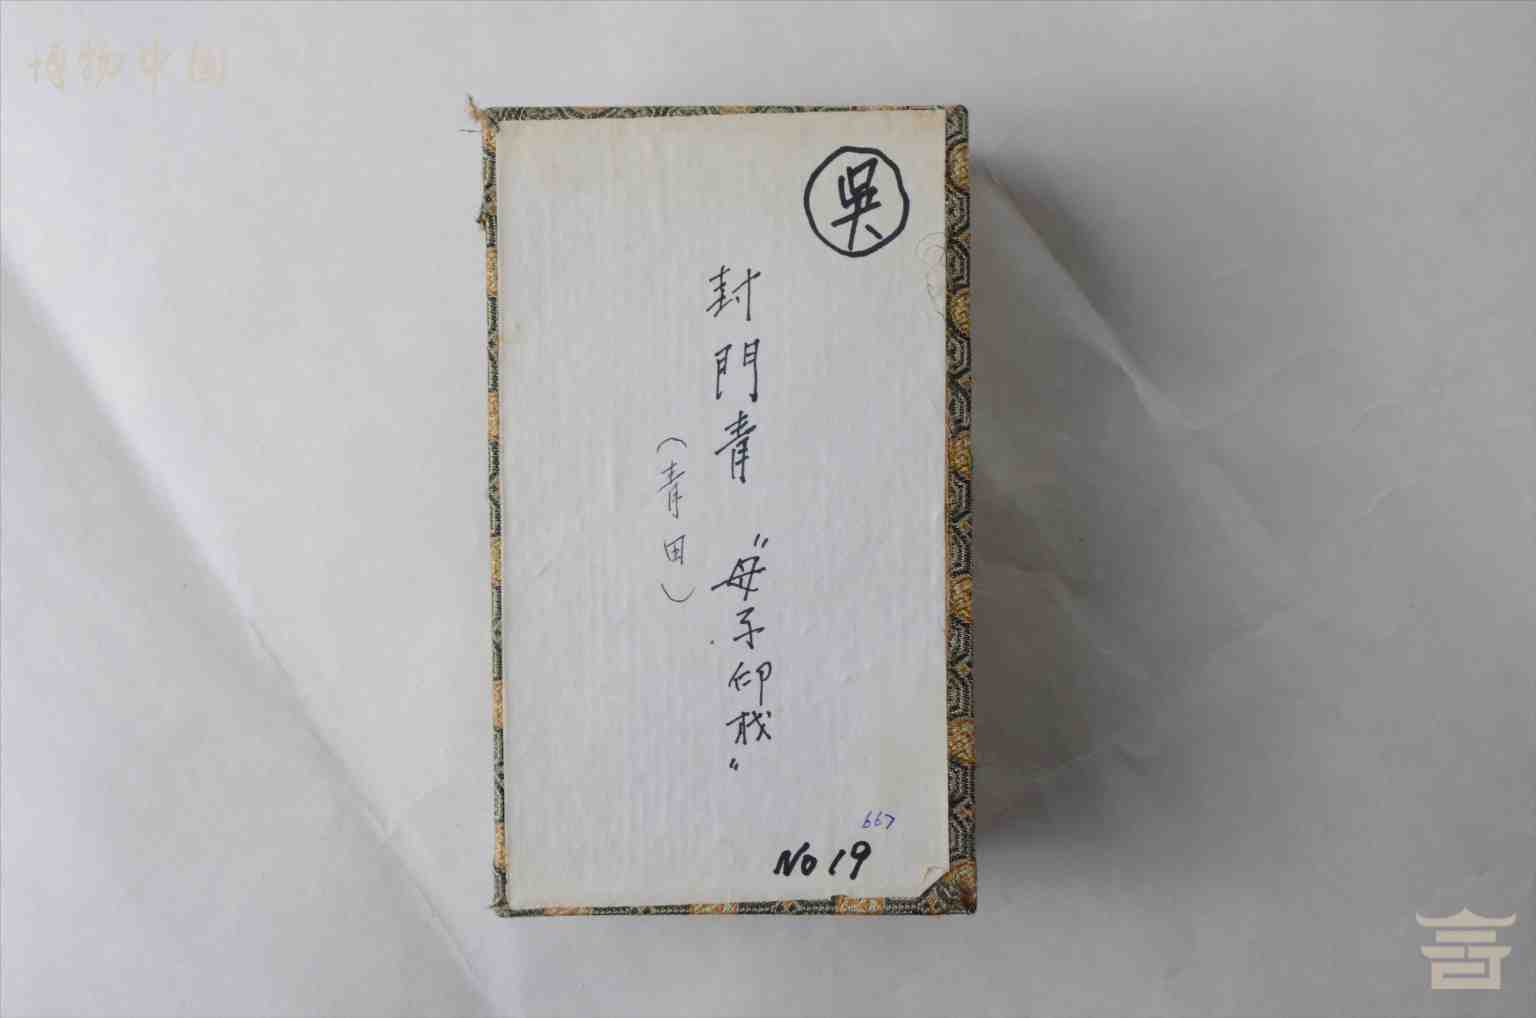 博物中国
吳
封門青 "母子印材"
(青田)
667
No 19